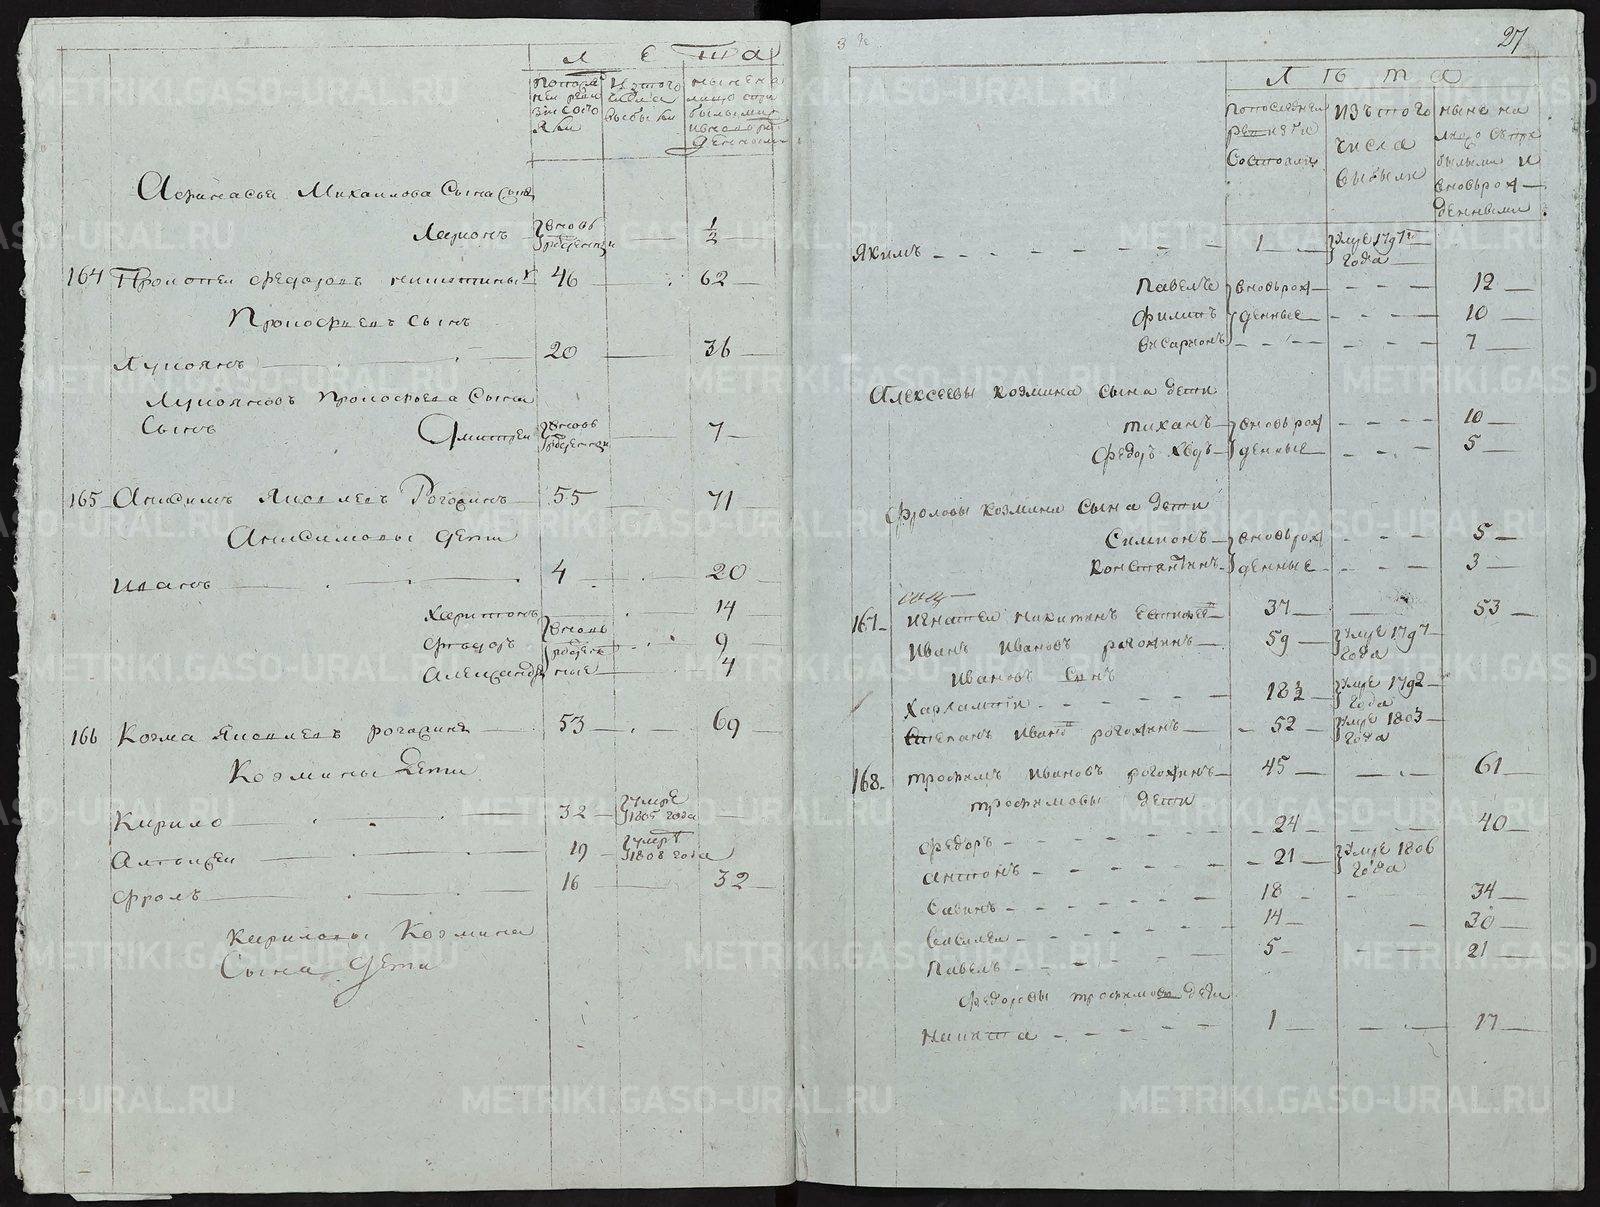 Л Е та
По посл
ней реви
зии состо
яли
Из того
числа
выбыли
ныне на
лицо съ при
былыми
и вновь ро
жденными
Афанасьи Михаилова Сына Сынъ
Ларионъ вновь рожденныи 1/2
164 Прокопеи Федоровъ 46 62
Прокофьевъ сынъ
Лукоянъ 20 36
Лукояновъ Прокофьева Сына
Сынъ Дмитреи вновь рожденныи 7
165 Анисимъ Яковлевъ Рогожинъ 55 71
Анисимовы дети
Иванъ 4 20
Харитонъ вновь 14
Федоръ рожден 9
Александръ ные 4
166 Козма Яковлевъ рогожинъ 53 69
Козмины Дети
Кирило 32 умре 1805 года
Алексеи 19 умре 1808 года
Фролъ 16 32
Кириловы Козмина
Сына Дети
27
Л ѣ т а
По последнеи
ревизии
Состояли
изъ того
числа
выбыли
ныне на
лицо съ при
былыми и
вновь рож
денными
Якимъ 1 умре 1797 года
Павелъ вновь рож 12
Филипъ денные 10
Висарионъ 7
Алексеевы козмина сына дети
тиханъ вновь рож 10
Федоръ денные 5
Фроловы козмина сына дети
Симионъ вновь рож 5
Константинъ денные 3
167 игнатеи никитинъ 37 53
Иванъ Ивановъ рогожинъ 59 умре 1797 года
Ивановъ Сынъ
Харлампии 18 1/2 умре 1792 года
Степанъ Иванъ рогожинъ 52 умре 1803 года
168 трофимъ Ивановъ рогожинъ 45 61
трофимовы дети
Федоръ 24 40
антонъ 21 умре 1806 года
Савинъ 18 34
Василеи 14 30
Павелъ 5 21
Федоровы трофимова дети
Никита 1 17
METRIKI.GASO-URAL.RU